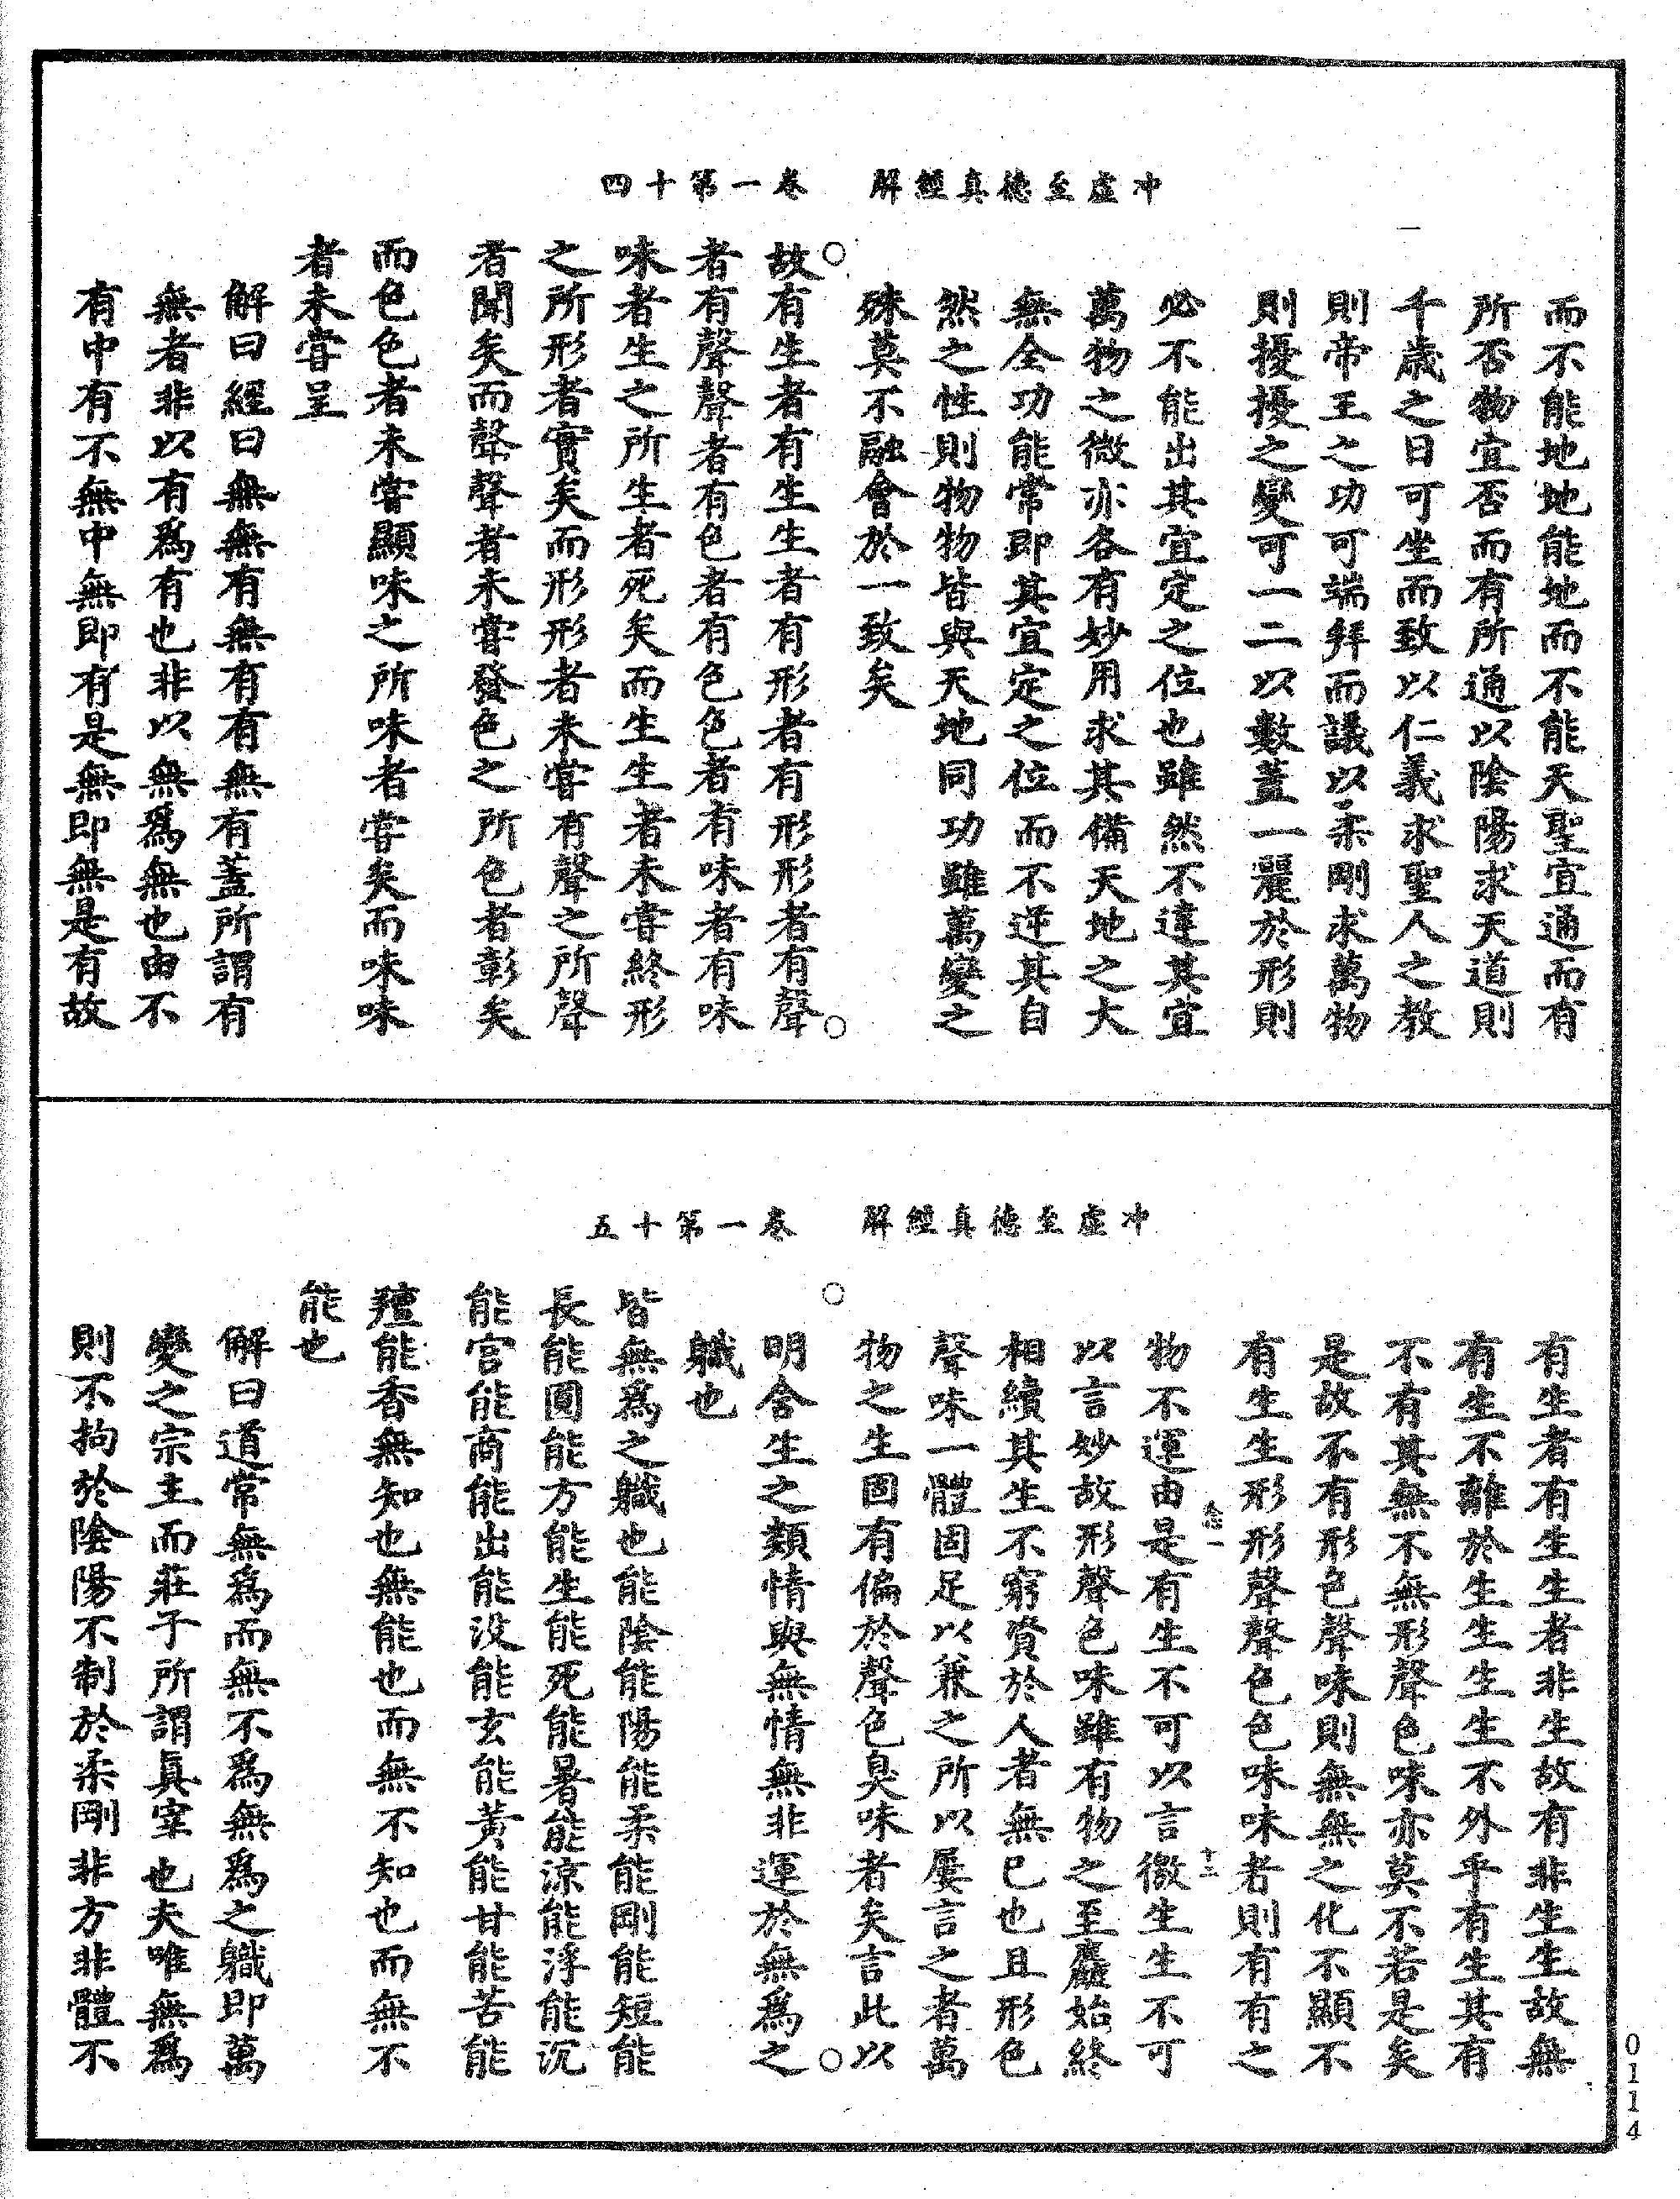 冲虛至德真經解　卷一第十四
一
而不能地地能地而不能天聖宜通而有
所否物宜否而有所通以陰陽求天道則
千歲之日可坐而致以仁義求聖人之教
則帝王之功可端拜而議以柔剛求萬物
則擾擾之變可一二以數蓋一麗於形則
必不能出其宜定之位也雖然不違其宜
萬物之微亦各有妙用求其備天地之大
無全功能常即其宜定之位而不逆其自
然之性則物物皆與天地同功雖萬變之
殊莫不融會於一致矣
○
故有生者有生生者有形者有形形者有聲
○
者有聲聲者有色者有色色者有味者有味
味者生之所生者死矣而生生者未嘗終形
之所形者實矣而形形者未嘗有聲之所聲
者聞矣而聲聲者未嘗發色之所色者彰矣
而色色者未嘗顯味之所味者嘗矣而味味
者未嘗呈
解曰經曰無無有無有有無有蓋所謂有
無者非以有爲有也非以無爲無也由不
有中有不無中無即有是無即無是有故
冲虛至德真經解　卷一第十五
有生者有生生者非生故有非生生故無
有生不離於生生生生不外乎有生其有
不有其無不無形聲色味亦莫不若是矣
是故不有形色聲味則無無之化不顯不
有生生形形聲聲色色味味者則有有之
物不運由是有生不可以言微生生不可
以言妙故形聲色味雖有物之至麤始終
相續其生不窮資於人者無已也且形色
聲味一體固足以兼之所以屢言之者萬
物之生固有偏於聲色臭味者矣言此以
○
明含生之類情與無情無非運於無爲之
○
職也
皆無爲之職也能陰能陽能柔能剛能短能
長能圓能方能生能死能暑能涼能浮能沉
能宮能商能出能沒能玄能黃能甘能苦能
羶能香無知也無能也而無不知也而無不
能也
解曰道常無爲而無不爲無爲之職即萬
變之宗主而莊子所謂真宰也夫唯無爲
則不拘於陰陽不制於柔剛非方非體不
0114